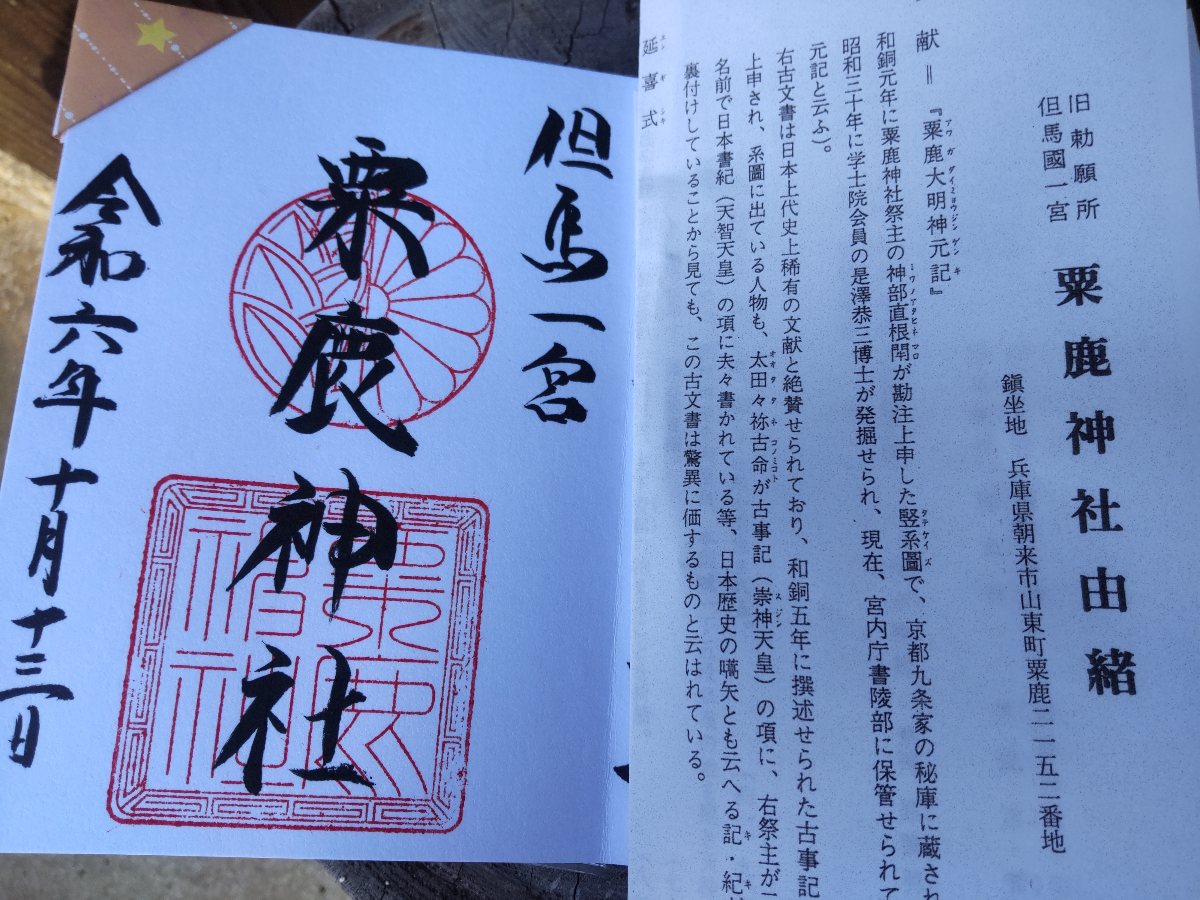 但馬一宮
粟鹿神社
令和六年十月十三日
旧勅願所
但馬國一宮
粟鹿神社由緒
鎭坐地 兵庫県朝来市山東町粟鹿二一五二番地
献＝『粟鹿大明神元記』
アワガダイミョウジンゲンキ
和銅元年に粟鹿神社祭主の神部直根閇が勘注上申した竪系圖で、京都九条家の秘庫に蔵され
ミワノアタヒネマロ
タテケイズ
昭和三十年に学士院会員の是澤恭三博士が発掘せられ、現在、宮内庁書陵部に保管せられて
元記と云ふ）。
右古文書は日本上代史上稀有の文献と絶賛せられており、和銅五年に撰述せられた古事記
上申され、系圖に出ている人物も、太田々祢古命が古事記（崇神天皇）の項に、右祭主が
オオタタネコノミコト
スジン
名前で日本書紀（天智天皇）の項に夫々書かれている等、日本歴史の嚆矢とも云へる記・紀
キ
キ
裏付けしていることから見ても、この古文書は驚異に価するものと云はれている。
延喜式
エンギシキ